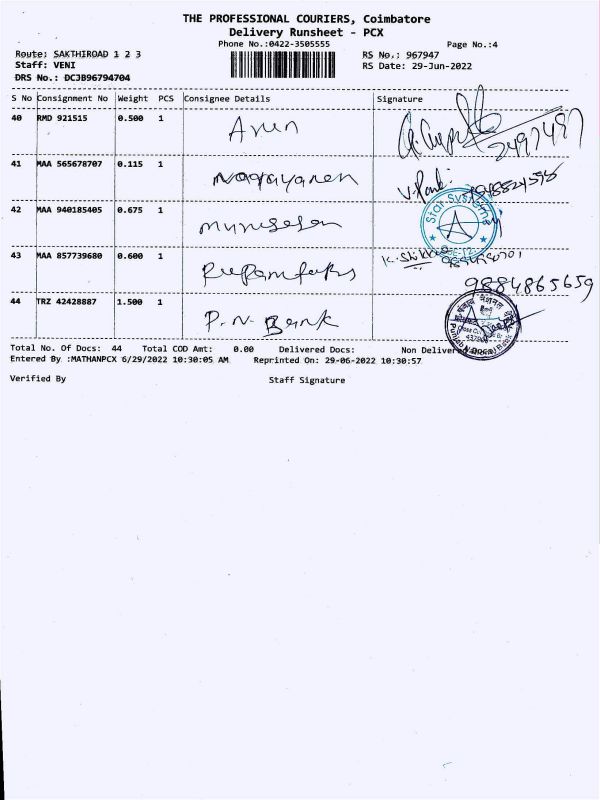 THE PROFESSIONAL COURIERS, Coimbatore
Delivery Runsheet - PCX
Phone No.:0422-3505555
Page No.:4
Route: SAKTHIROAD 1 2 3
RS No.: 967947
Staff: VENI
RS Date: 29-Jun-2022
DRS No.: DCJB96794704
S No Consignment No Weight PCS Consignee Details Signature
40 RMD 921515 0.500 1 Arun
41 MAA 565678707 0.115 1 Nagayanen
42 MAA 940185405 0.675 1
Star Systems
43 MAA 857739680 0.600 1
9884865659
44 TRZ 42428887 1.500 1 P.N. Bank
Total No. Of Docs: 44 Total COD Amt: 0.00 Delivered Docs: Non Delivered Docs:
Entered By :MATHANPCX 6/29/2022 10:30:05 AM Reprinted On: 29-06-2022 10:30:57
Verified By Staff Signature